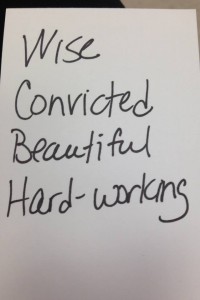 Wise
Convicted
Beautiful
Hard-working